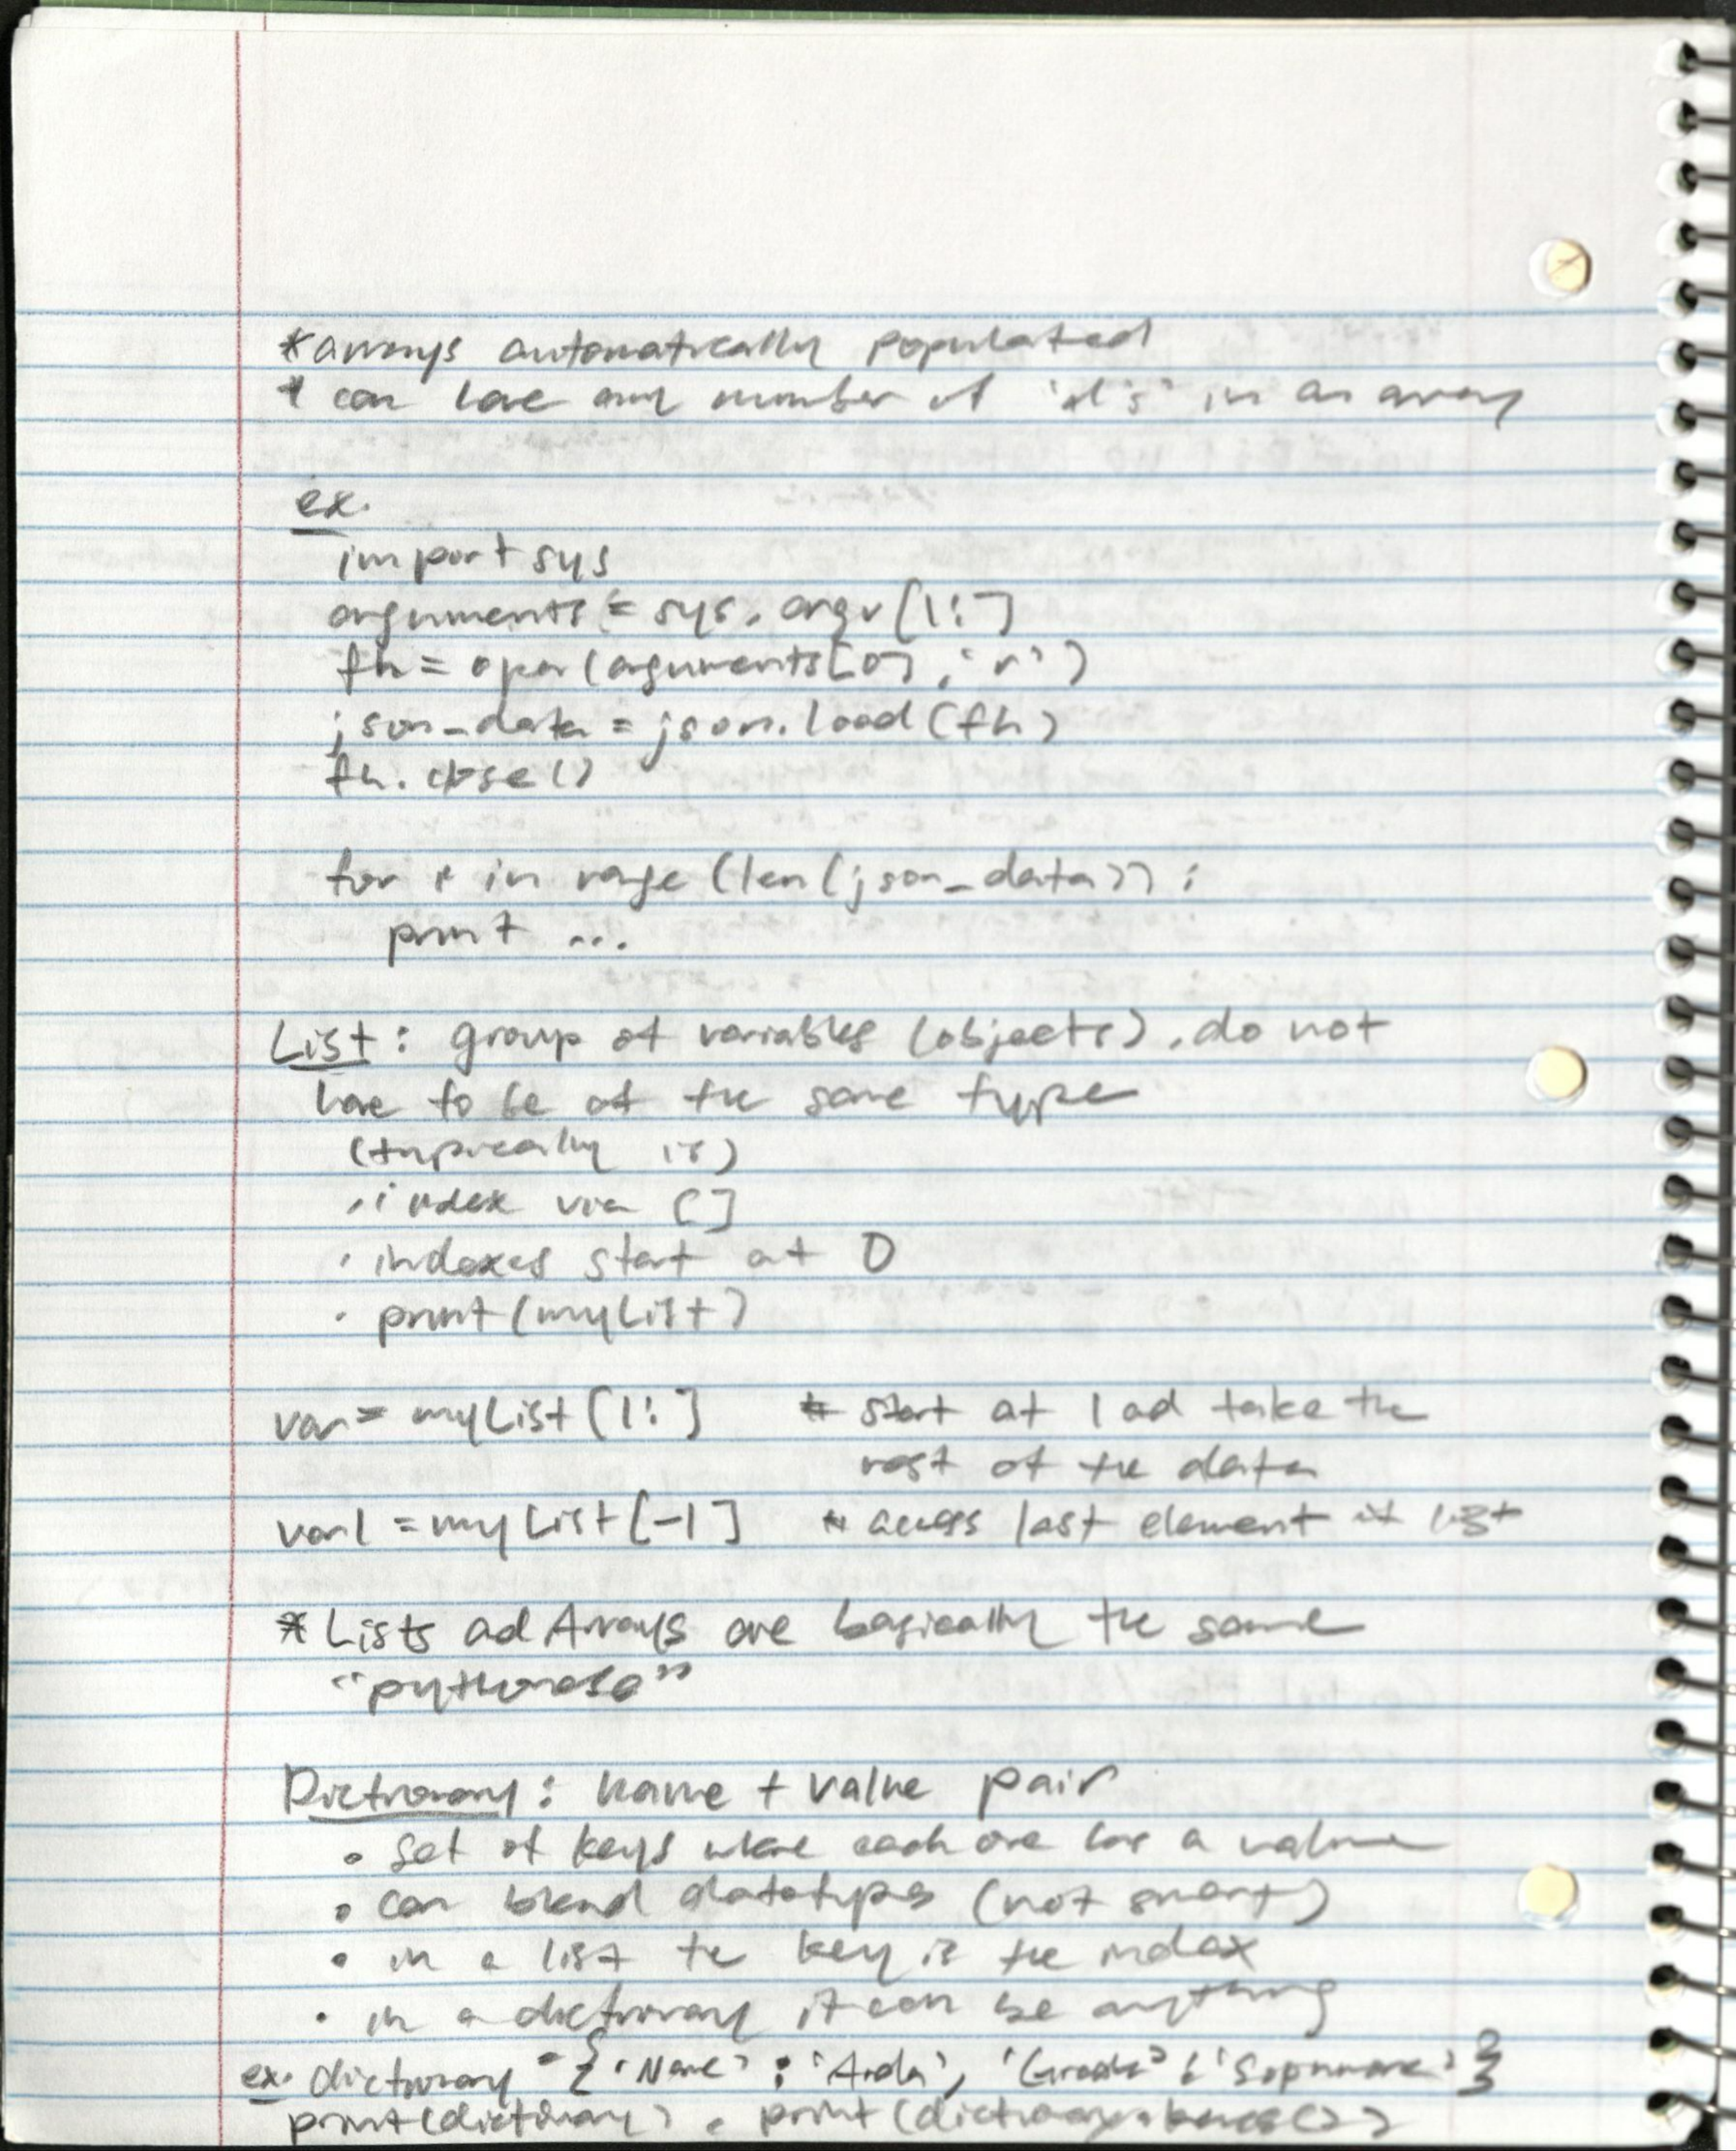 *arrays automatically populated
* can have any number of in an array
ex.
import sys
arguments = sys.argv[1:]
fh = open(arguments[0], 'r')
json_data = json.load(fh)
fh.close()
for * in range (len(json_data)):
print ...
List: group of variables (objects), do not
have to be of the same type
(typically is)
· index via []
· indexes start at 0
· print(myList)
var = myList[1:] * start at 1 and take the
rest of the data
var1 = myList[-1] * access last element it list
* Lists and Arrays are basically the same
Dictionary: name + value pair
• set of keys where each one has a value
• can blend datatypes (not smart)
• in a list the key is the index
• in a dictionary it can be anything
ex. dictionary = { 'Name' : , 'Grade' : }
print(dictionary) . print(dictionary.keys())